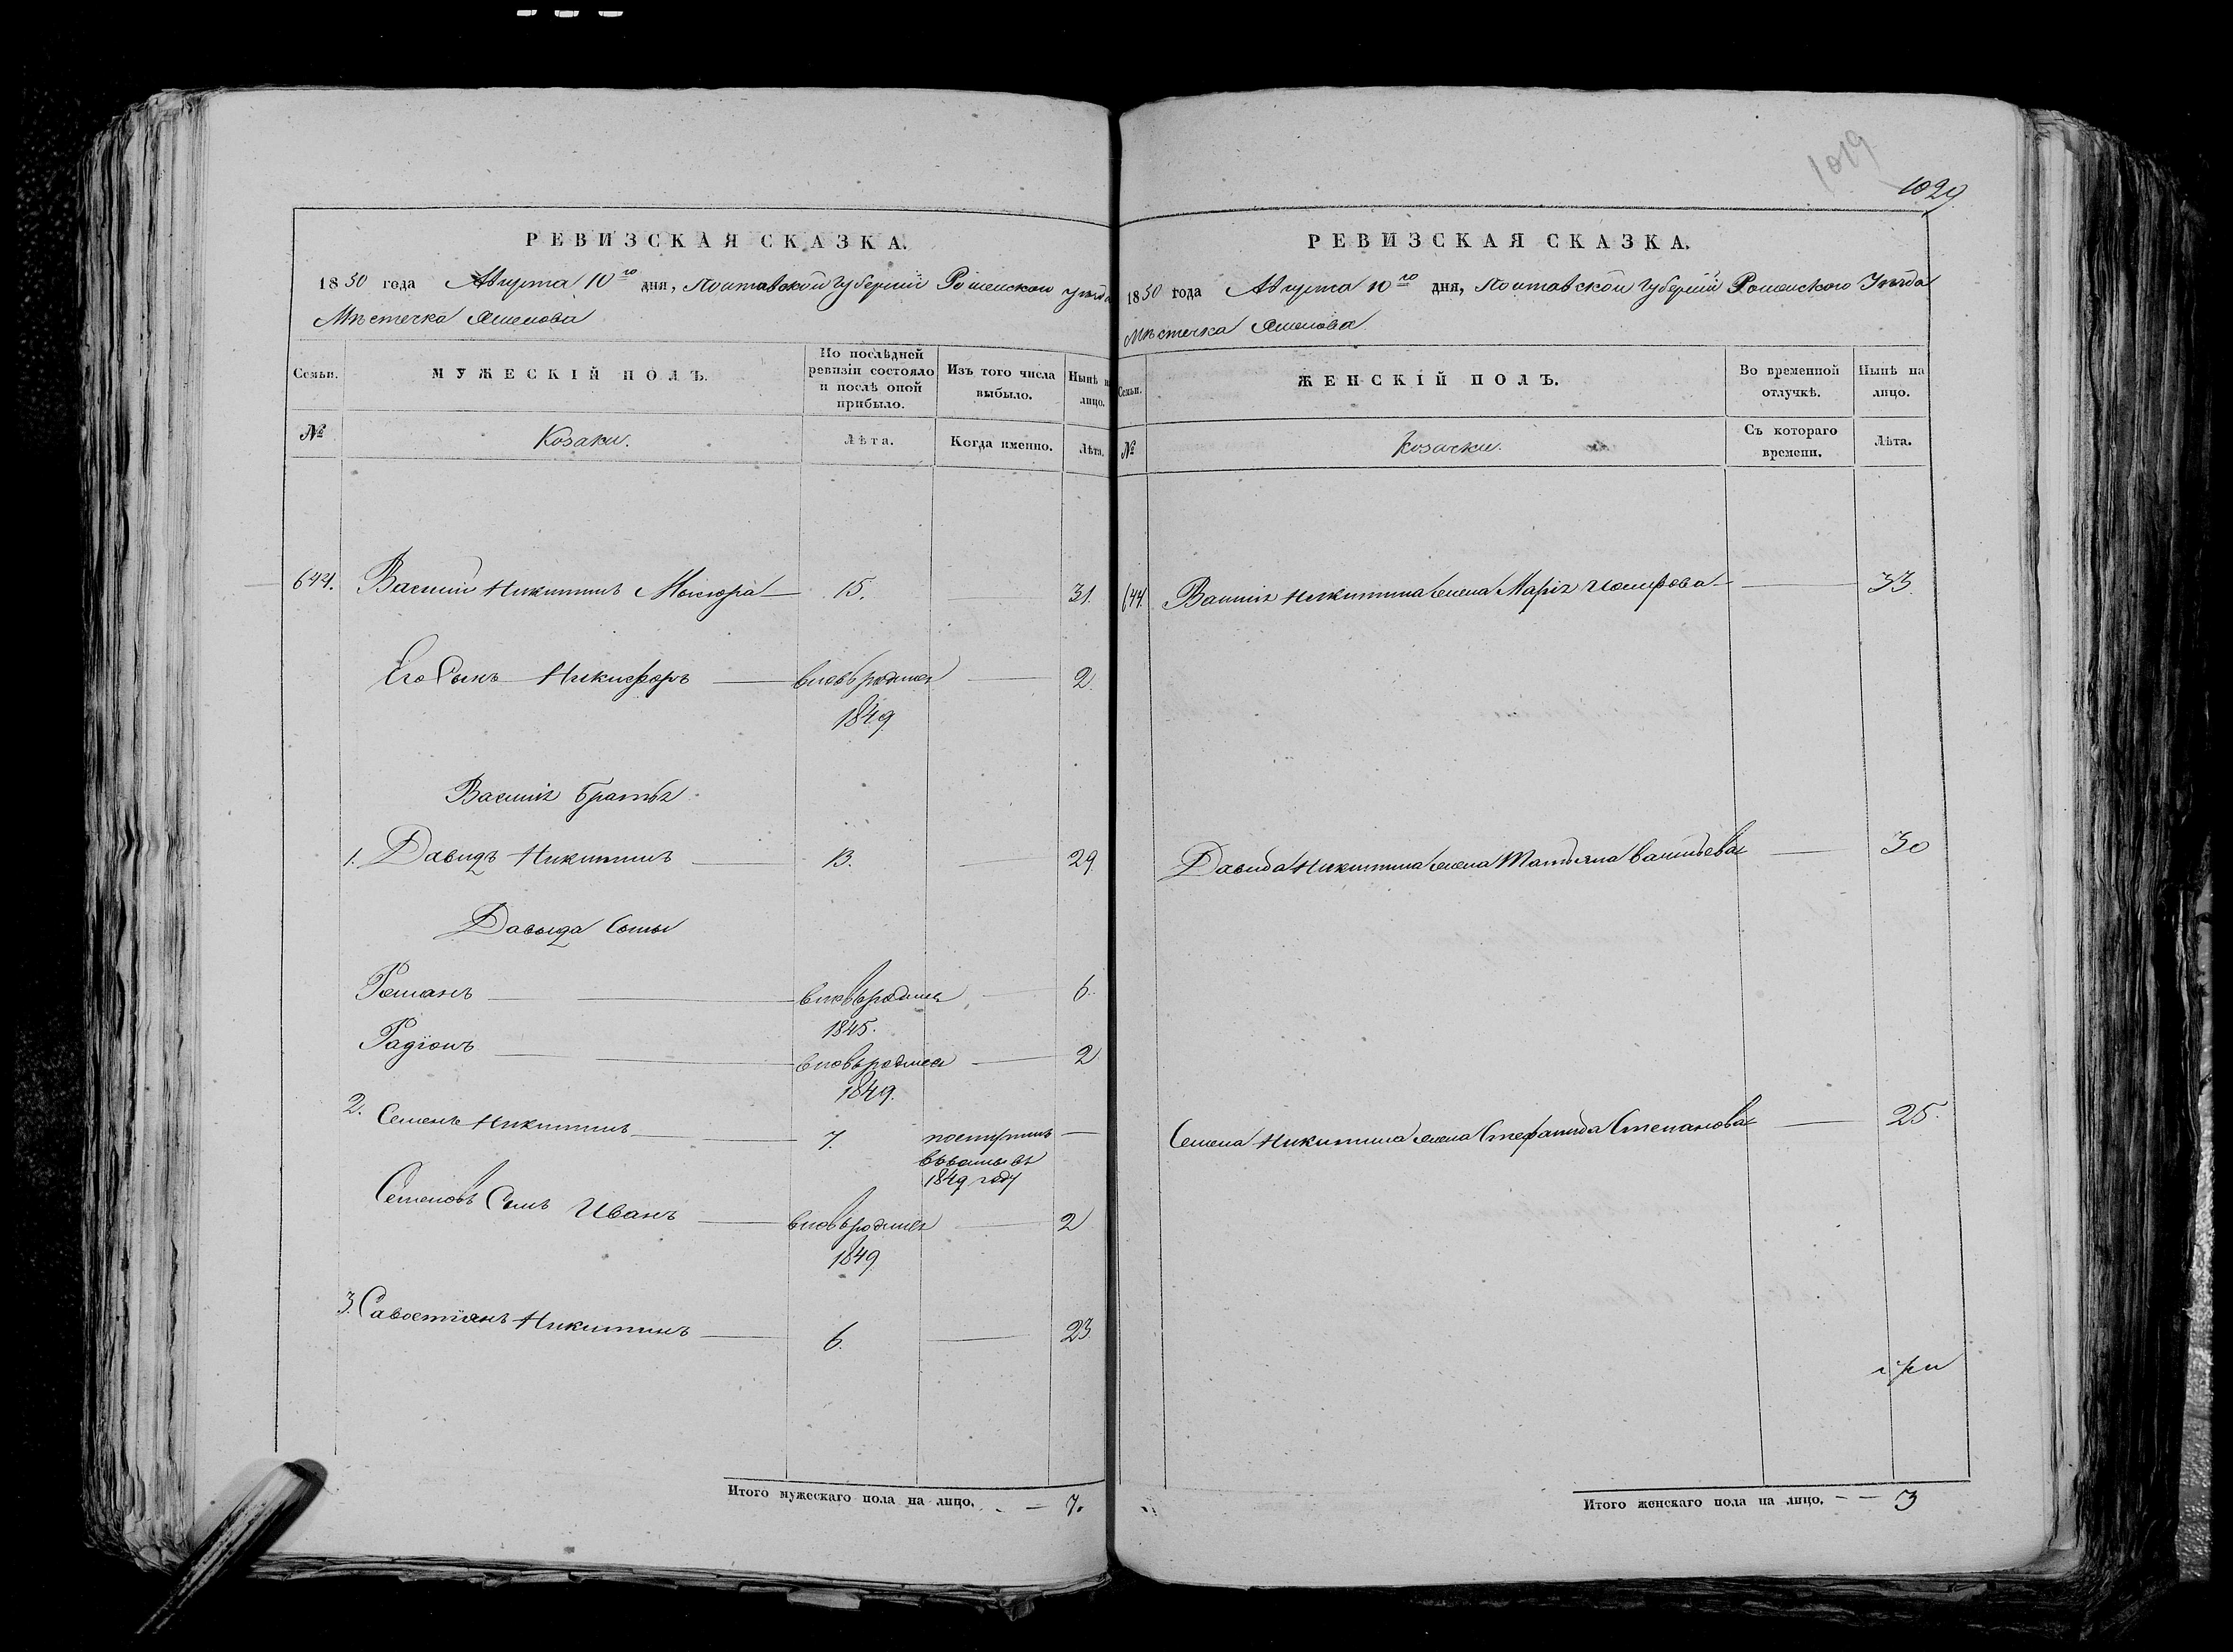 1019
1029
РЕВИЗСКАЯ СКАЗКА.
1850 года Августа 10го дня, Полтавской Губернии Роменского уезда
Мѣстечка Смелова
Семьи.
МУЖЕСКІЙ ПОЛЪ.
По послѣдней ревизіи состояло и послѣ оной прибыло.
Изъ того числа выбыло.
Нынѣ на лицо.
№
Козаки.
Лѣта.
Когда именно.
Лѣта.
644. Василий Никитинъ Мокіора 15. 31.
Его Сынъ Никифоръ вновь родился 2.
1849
Василія братья
1. Давидъ Никитинъ 13. 29.
Давыда Сыны
Романъ вновь родился 6.
1845.
Радіонъ вновь родился 2
1849.
2. Семенъ Никитинъ 7. поступилъ
въ
1849 году
Семеновъ Сынъ Иванъ вновь родился 2
1849
3. Савостіянъ Никитинъ 6. 23
Итого мужескаго пола на лицо. 7.
РЕВИЗСКАЯ СКАЗКА.
1850 года Августа 10го дня, Полтавской Губерніи Роменского Уѣзда
Мѣстечка Смелова
Семьи.
ЖЕНСКІЙ ПОЛЪ.
Во временной отлучкѣ.
Нынѣ на лицо.
№
Козачки.
Съ котораго времени.
Лѣта.
644. Василія Никитина жена Марія Иосифова 33.
Давида Никитина жена Татьяна Васильева 30
Семена Никитина жена Стефанида Степанова 25.
три
Итого женскаго пола на лицо. 3